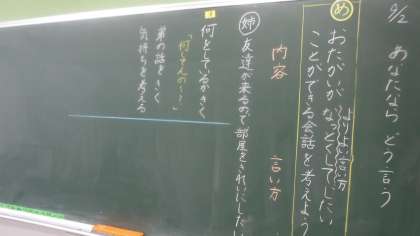 9/2 あなたなら どう言う
め
おたがいがなっとくしてしたい
よりよい言い方
ことができる会話を考えよう
内容 言い方
姉 友達が来るので部屋をきれいにしたい
何をしているかきく
「何してんの〜？」
弟の話をきく
気持ちを考える